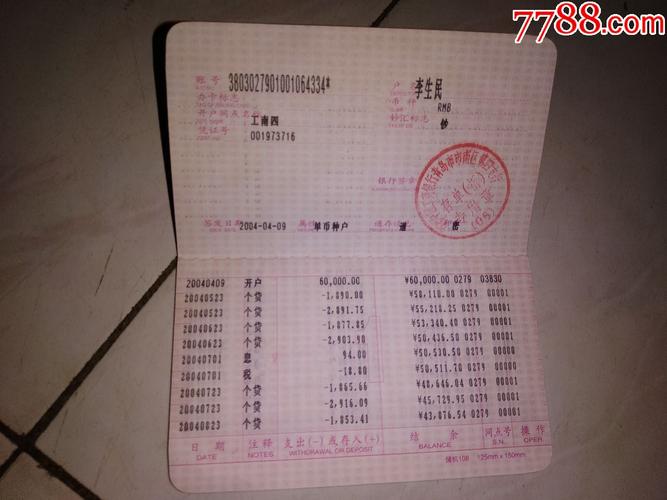 7788.com
账号 3803027901001064334* 户名 李生民
办卡标志 币种 RMB
开户网点名称 工南四 钞汇标志 钞
凭证号 001973716
银行签章
签发日期 2004-04-09 单币种户 通存 通
20040409 开户 60,000.00 ¥60,000.00 0279 03830
20040523 个贷 -1,890.00 ¥58,110.00 0279 00001
20040523 个贷 -2,891.75 ¥55,218.25 0279 00001
20040623 个贷 -1,877.85 ¥53,340.40 0279 00001
20040623 个贷 -2,903.90 ¥50,436.50 0279 00001
20040701 息 94.00 ¥50,530.50 0279 00001
20040701 税 -18.80 ¥50,511.70 0279 00001
20040723 个贷 -1,865.66 ¥48,646.04 0279 00001
20040723 个贷 -2,916.09 ¥45,729.95 0279 00001
20040823 个贷 -1,853.41 ¥43,876.54 0279 00001
日期 注释 支出(-)或存入(+) 结余 网点号 操作
DATE NOTES WITHDRAWAL OR DEPOSIT BALANCE S.N. OPER
储机108 125mm x 150mm